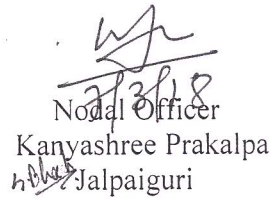 7/3/18
Nodal Officer
Kanyashree Prakalpa
Jalpaiguri